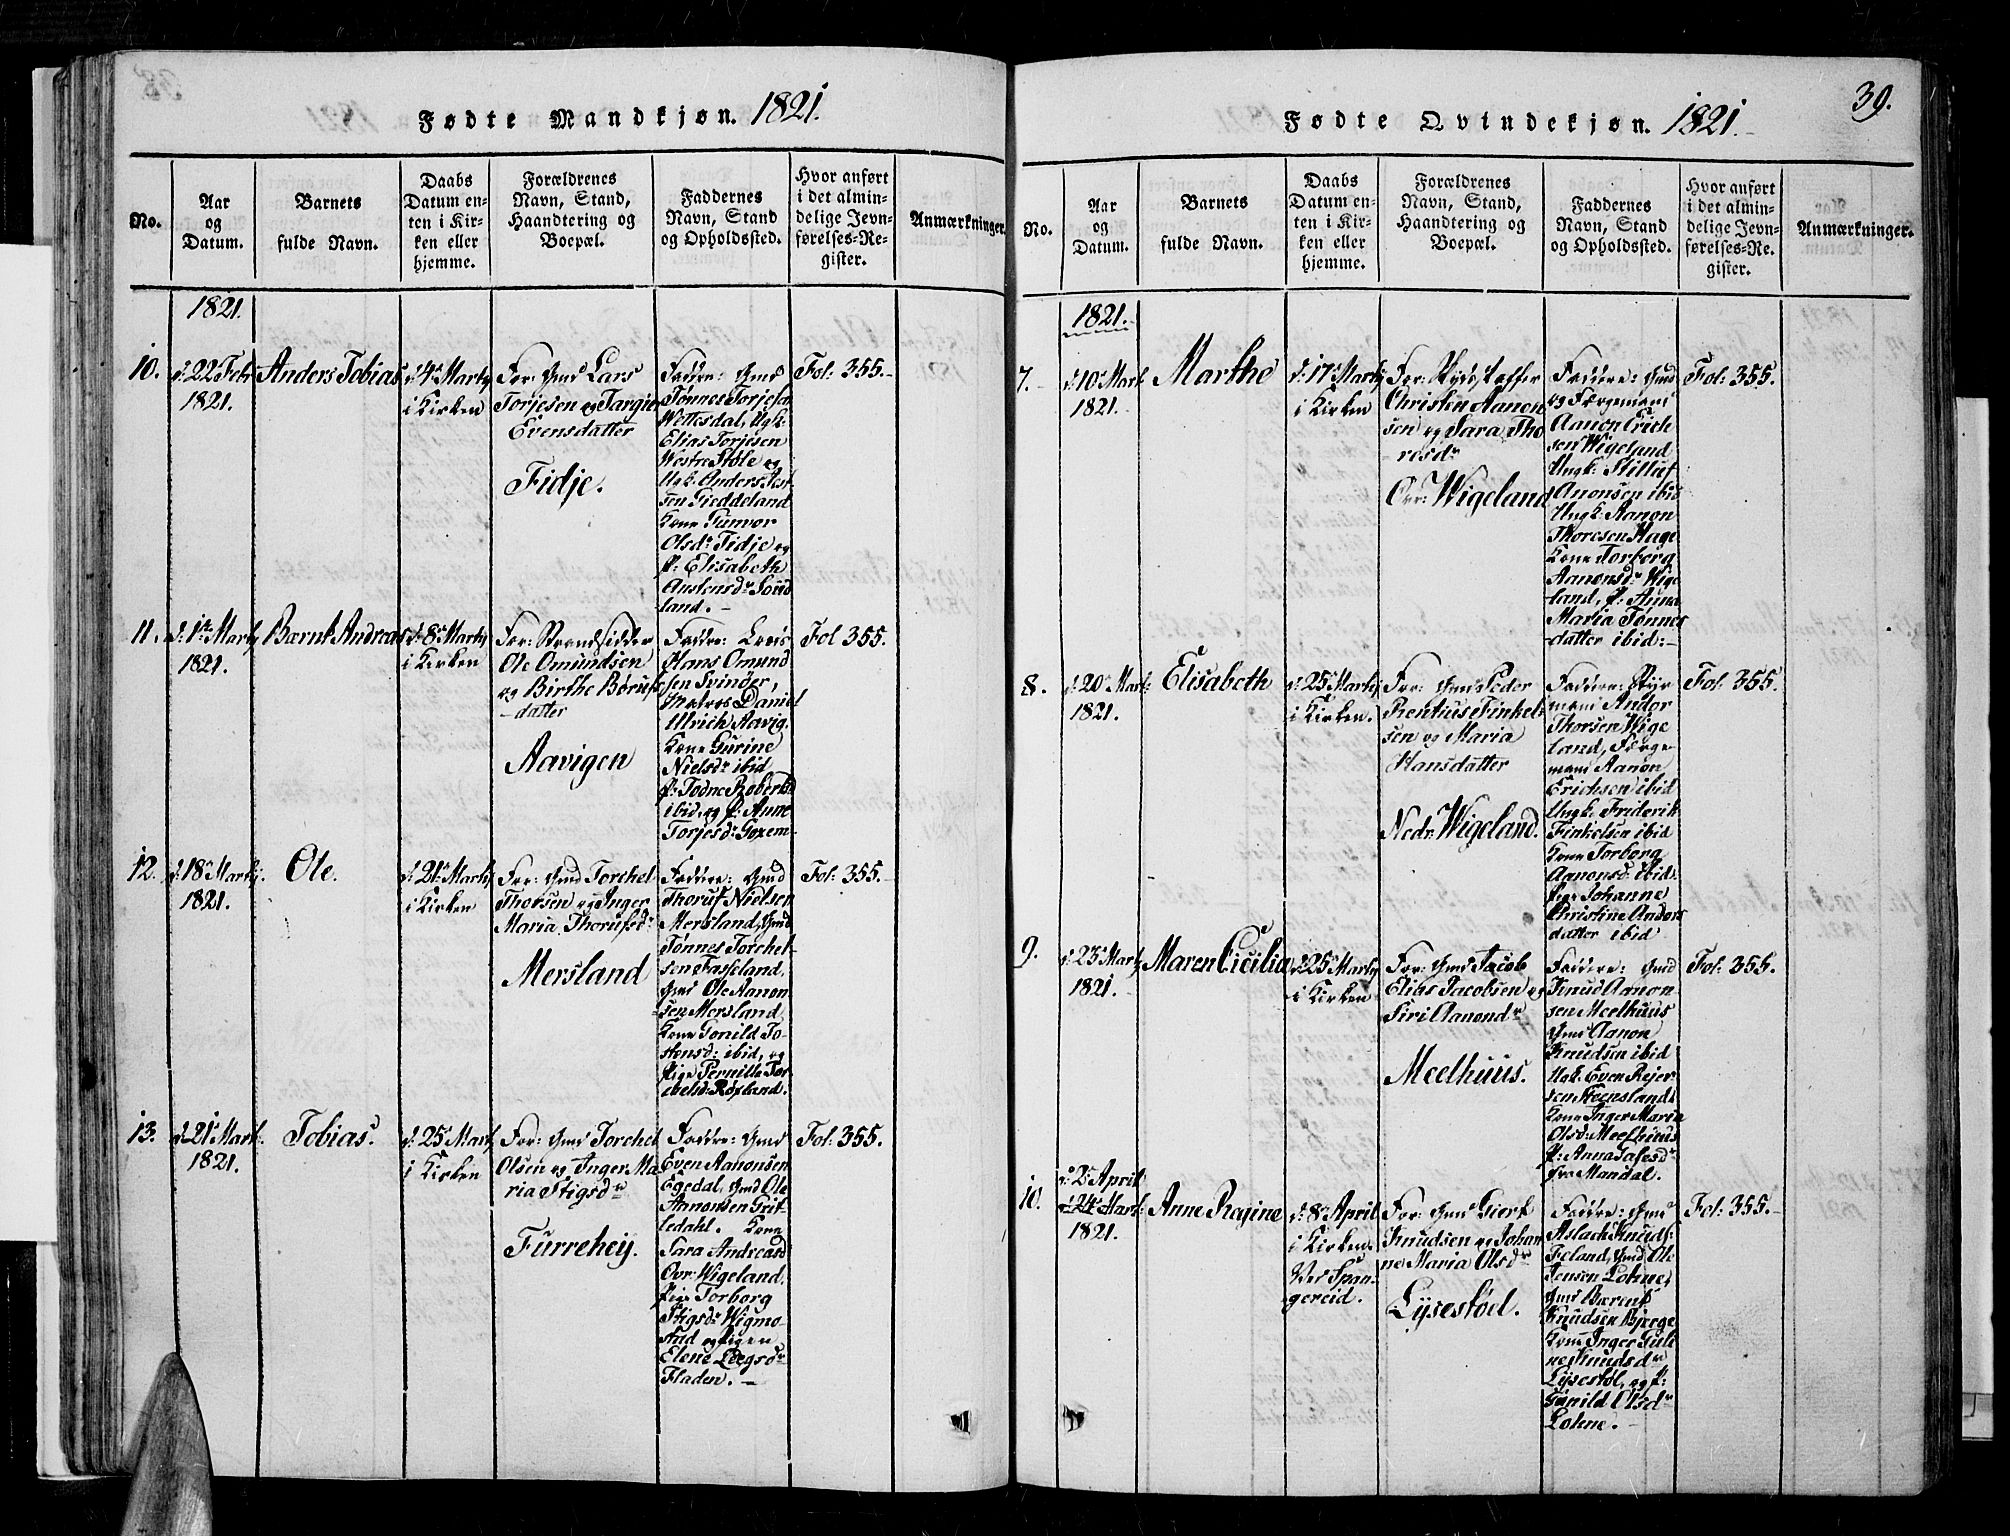 Fødte Mandkjøn. 1821.
No.
Aar
og
Datum.
Barnets
fulde Navn.
Daabs
Datum en-
ten i Kir-
ken eller
hjemme.
Forældrenes
Navn, Stand,
Haandtering og
Boepæl.
Faddernes
Navn, Stand
og Opholdssted.
Hvor anført
i det almin-
delige Jevn-
førelses-Re-
gister.
Anmærkninger.
1821.
10.
d: 22 Febr
1821.
Anders Tobias
d: 4 Martij
i Kirken
For: Gmd Lars
Torjesen og Targier
Evensdatter
Fidje.
Faddre: Gmd
Tønnes Torjesen
Wettesdal, Ugk:
Elias Torjesen
Westre Støle og
Ugk: Anders
sen Gieddeland
Kone Gunvor
Olsdr Fidje og
P: Elisabeth
Austensdr Sørd
land. –
Fol: 355. –
11.
d: 1te Martij
1821.
Bærnt Andreas
d: 8 Martij
i Kirken
For: Strandsidder
Ole Omundsen
og Birthe Børuf
datter
Aavigen
Faddre: Lods
Hans Omund
sen Svinøer,
Matros Daniel
Ulrich Aavig.
Kone Gurine
Nielsdr ibid
P: Todne Robertsd
ibid, og P: Anne
Torjesdr Goxem –
Fol 355.
12.
d: 18 Martij.
1821.
Ole.
d: 21 Martij
i Kirken
For: Gmd Torchel
Thorsen og Inger
Maria Thorufsdr
Mersland
Faddre: Gmd
Thoruf Nielsen
Mersland, Gmd
Tønnes Torchel-
sen Fasseland,
Gmd Ole Aanon
sen Mersland,
Kone Gonild To-
stensd: ibid, og
Pige Pernille Tor
chelsd: Røyland.
Fol: 355. –
13.
d: 21 Mart:
1821.
Tobias.
d: 25 Mart,
i Kirken
For: Gmd Torchel
Olsen og Inger Ma
ria Stigsdr
Furreheij.
Faddre: Gmd
Even Aanonsen
Egedal, Gmd Ole
Aanonsen Grit-
ledahl. Kone
Sara Andreasd
Ovr: Wigeland,
Pige Torborg
Stigsdr Wigmo-
stad og Pigen
Elene Legsdr
Fladen. –
Fol: 355.
Fødte Qvindekjøn. 1821. –
39.
No.
Aar
og
Datum.
Barnets
fulde Navn.
Daabs
Datum en-
ten i Kir-
ken eller
hjemme.
Forældrenes
Navn, Stand,
Haandtering og
Boepæl.
Faddernes
Navn, Stand
og Opholdssted.
Hvor anført
i det almin-
delige Jevn-
førelses-Re-
gister.
Anmærkninger.
1821.
7. –
d: 10 Mart
1821.
Marthe
d: 17 Martij
i Kirken
For: Skydsskaffer
Christen Aanon
sen og Sara Tho
resdr
Ovr: Wigeland
Faddre: Gmd
og Færgemand
Aanon Erich
sen Wigeland
Ungk:
Anonsen ibid
Ungk: Aanon
Thoresen Hage
Kone Torborg
Aanonsdr Wige
land, P: Anna
Maria Tønnes
datter ibid: –
Fol: 355.
8.
d: 20 Mart:
1821.
Elisabeth
d: 25 Martij
i Kirken.
For: Gmd Peder
Rentius Finkel-
sen og Maria
Hansdatter
Nedr: Wigeland.
Faddre: Styr
mand Andor
Thorsen Wige
land, Færge
mand Aanon
Erichsen ibid
Ungk: Friderik
Finkelsen ibid
Kone Torborg
Aanonsd: ibid
Pige Johanne
Christine Andors
datter ibid
Fol: 355.
9.
d: 23 Mart,
1821.
Maren Cicilia
d: 25 Martij
i Kirken
For: Gmd Jacob
Elias Jacobsen og
Siri Aanondr
Meelhuus.
Faddre: Gmd
Knud Aanon-
sen Meelhuus
Gmd Aanon
Knudsen ibid
Ugk: Even Rejer
sen Steensland
Kone Inger Maria
Olsd: Meelhuus
P: Anna Salesdr
fra Mandal.
Fol: 355.
10.
d: 2 April
d: 24 Mart:
1821.
Anne Regine
d: 8 April
i Kirken
Ved Span-
gereid.
For: Gmd Giert
Knudsen og Johan
ne Maria Olsdr
Lysestød.
Faddre: Gmd
Aslach Knuds:
Feland, Gmd Ole
Jensen Lohne,
Gmd Bærent
Knudsen Bjerge
Kone Inger Tuli
ne Knudsdr
Lysestøl, og P:
Gunild Olsdr
Lohne. –
Fol: 355. –